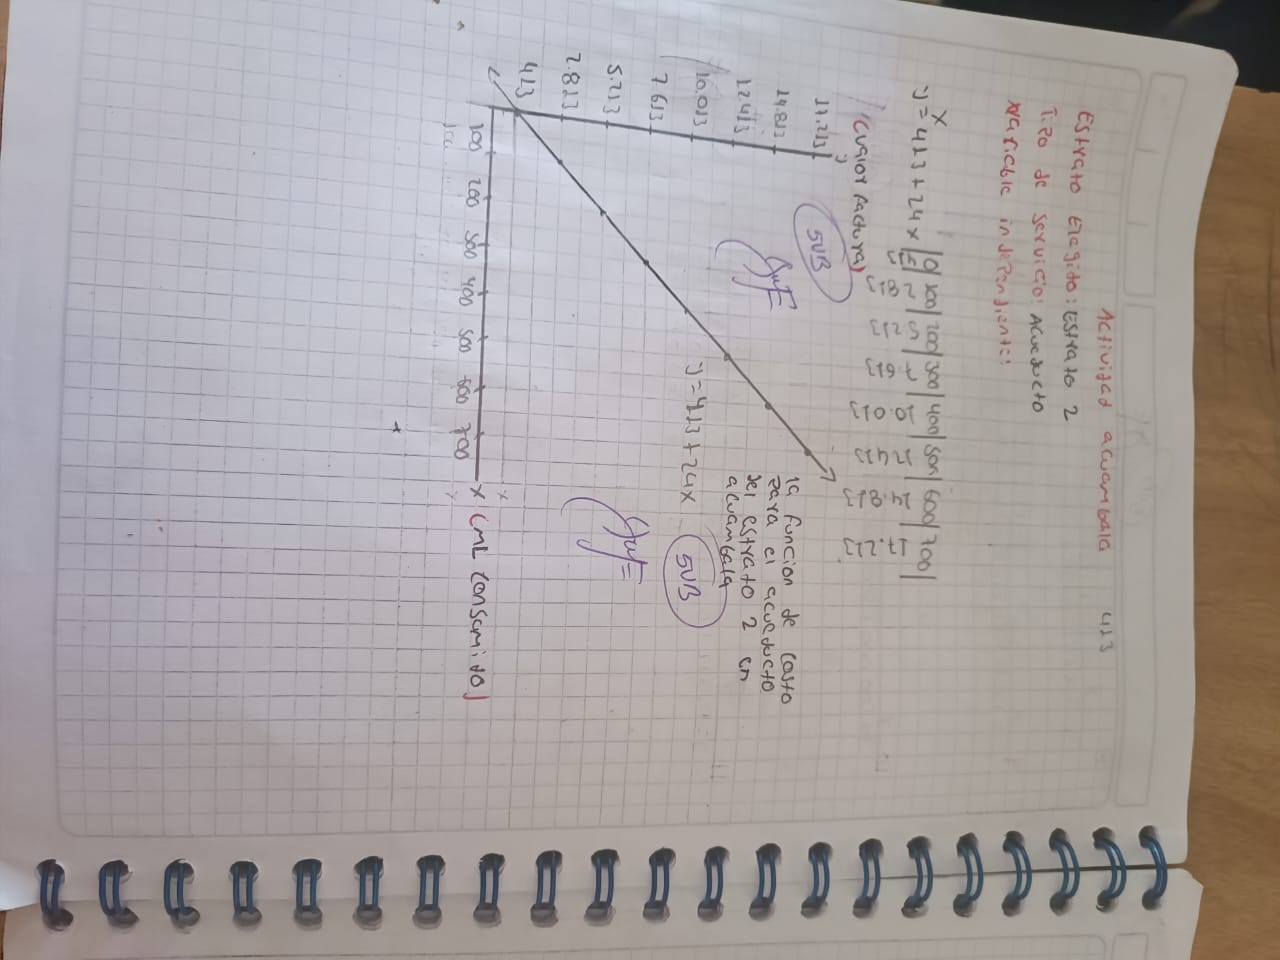 Actividad acuambala 413
Estrato Elegido: Estrato 2
Tipo de servicio: Acueducto
Variable independiente:
x
0 | 100 | 200 | 300 | 400 | 500 | 600 | 700 |
y=413+24x
2813 5213 7613 10.013 12413 14.813 17.213
(valor factura)
SVB
y
17.213
14.813
12.413
10.013
7613
5.213
2.813
413
la funcion de costo
para el acueducto
del estrato 2 en
acuambala
y=413+24x
SVB
100 200 300 400 500 600 700 x (mL consumido)